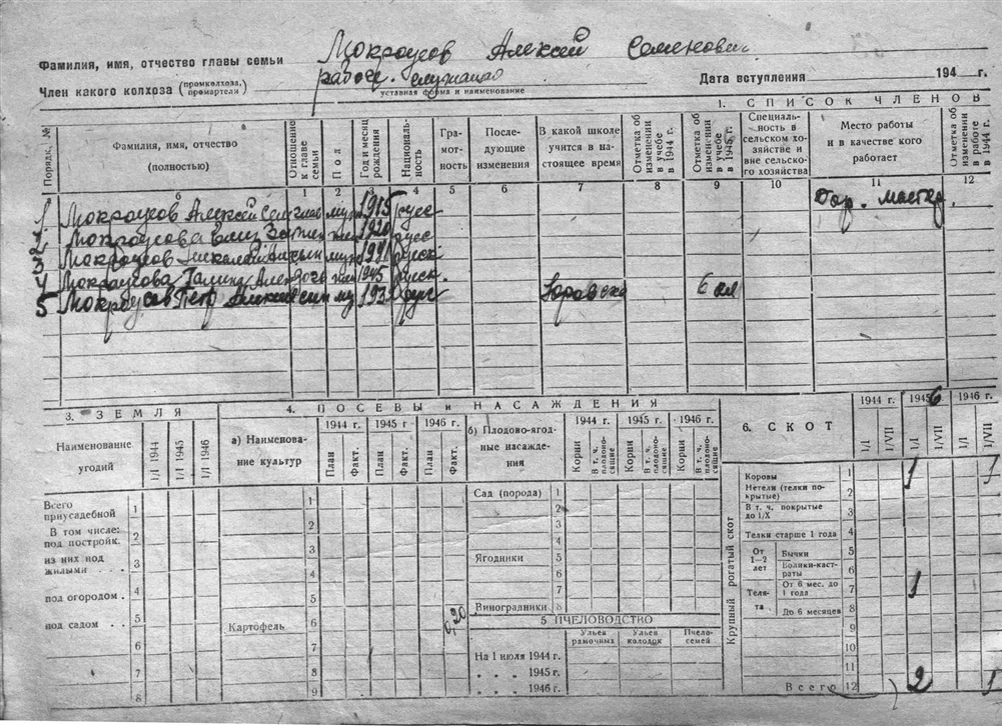 Фамилия, имя, отчество главы семьи Мокроусов Алексей Семенович
Член какого колхоза (промколхоза, промартели) рабоч. служащая Дата вступления 194 г.
уставная форма и наименование
1. СПИСОК ЧЛЕНОВ
Порядк. № Фамилия, имя, отчество (полностью) Отношение к главе семьи Пол Год и месяц рождения Националь-ность Гра-мот-ность После-дующие изменения В какой школе учится в на-стоящее время Отметка об изменении в учебе в 1944 г. Отметка об изменении в учебе в 1945 г. Специаль-ность в сельском хо-зяйстве и вне сельско-го хозяйства Место работы и в качестве кого работает Отметка об изменении в работе в 1944 г.
б 1 2 3 4 5 6 7 8 9 10 11 12
1 Мокроусов Алексей Сем глав муж 1915 русс Гор. мастер.
2 Мокроусова Елиз жен 1920 русс
3 Мокроусов Николай муж русск
4 Мокроусова Галина жен 1945 русск.
5 Мокроусов Петр муж рус 6 кл
3. ЗЕМЛЯ 4. ПОСЕВЫ и НАСАЖДЕНИЯ 6. СКОТ
Наименование угодий 1/I 1944 1/I 1945 1/I 1946
а) Наименова-ние культур 1944 г. 1945 г 1946 г.
План Факт. План Факт. План Факт.
б) Плодово-ягод-ные насажде-ния 1944 г. 1945 г. 1946 г.
Корни В т. ч. плодоно-сящие Корни В т. ч. плодоно-сящие Корни В т. ч. плодоно-сящие
1944 г. 19456 1946 г.
1/I 1/VII 1/I 1/VII 1/I 1/VII
Всего приусадебной 1
В том числе: под постройк. 2
из них под жилыми 3
под огородом . 4
под садом . . 5
6
7
8
1
2
3
4
5
Картофель 6 0,20
7
8
9
Сад (порода) 1
2
3
4
Ягодники 5
6
7
Виноградники 8
5 ПЧЕЛОВОДСТВО
Ульев рамочных Ульев колодок Пчело-семей
На 1 июля 1944 г.
. . . 1945 г.
. . . 1946 г.
Крупный рогатый скот
Коровы 1 1 1
Нетели (телки по-крытые) 2
В т. ч. покрытые до 1/X 3
Телки старше 1 года 4
От 1—2 лет Бычки 5
Волики-каст-раты 6
Теля-та От 6 мес. до 1 года 7 1
До 6 месяцев 8
9
10
11
Всего 12 2 1